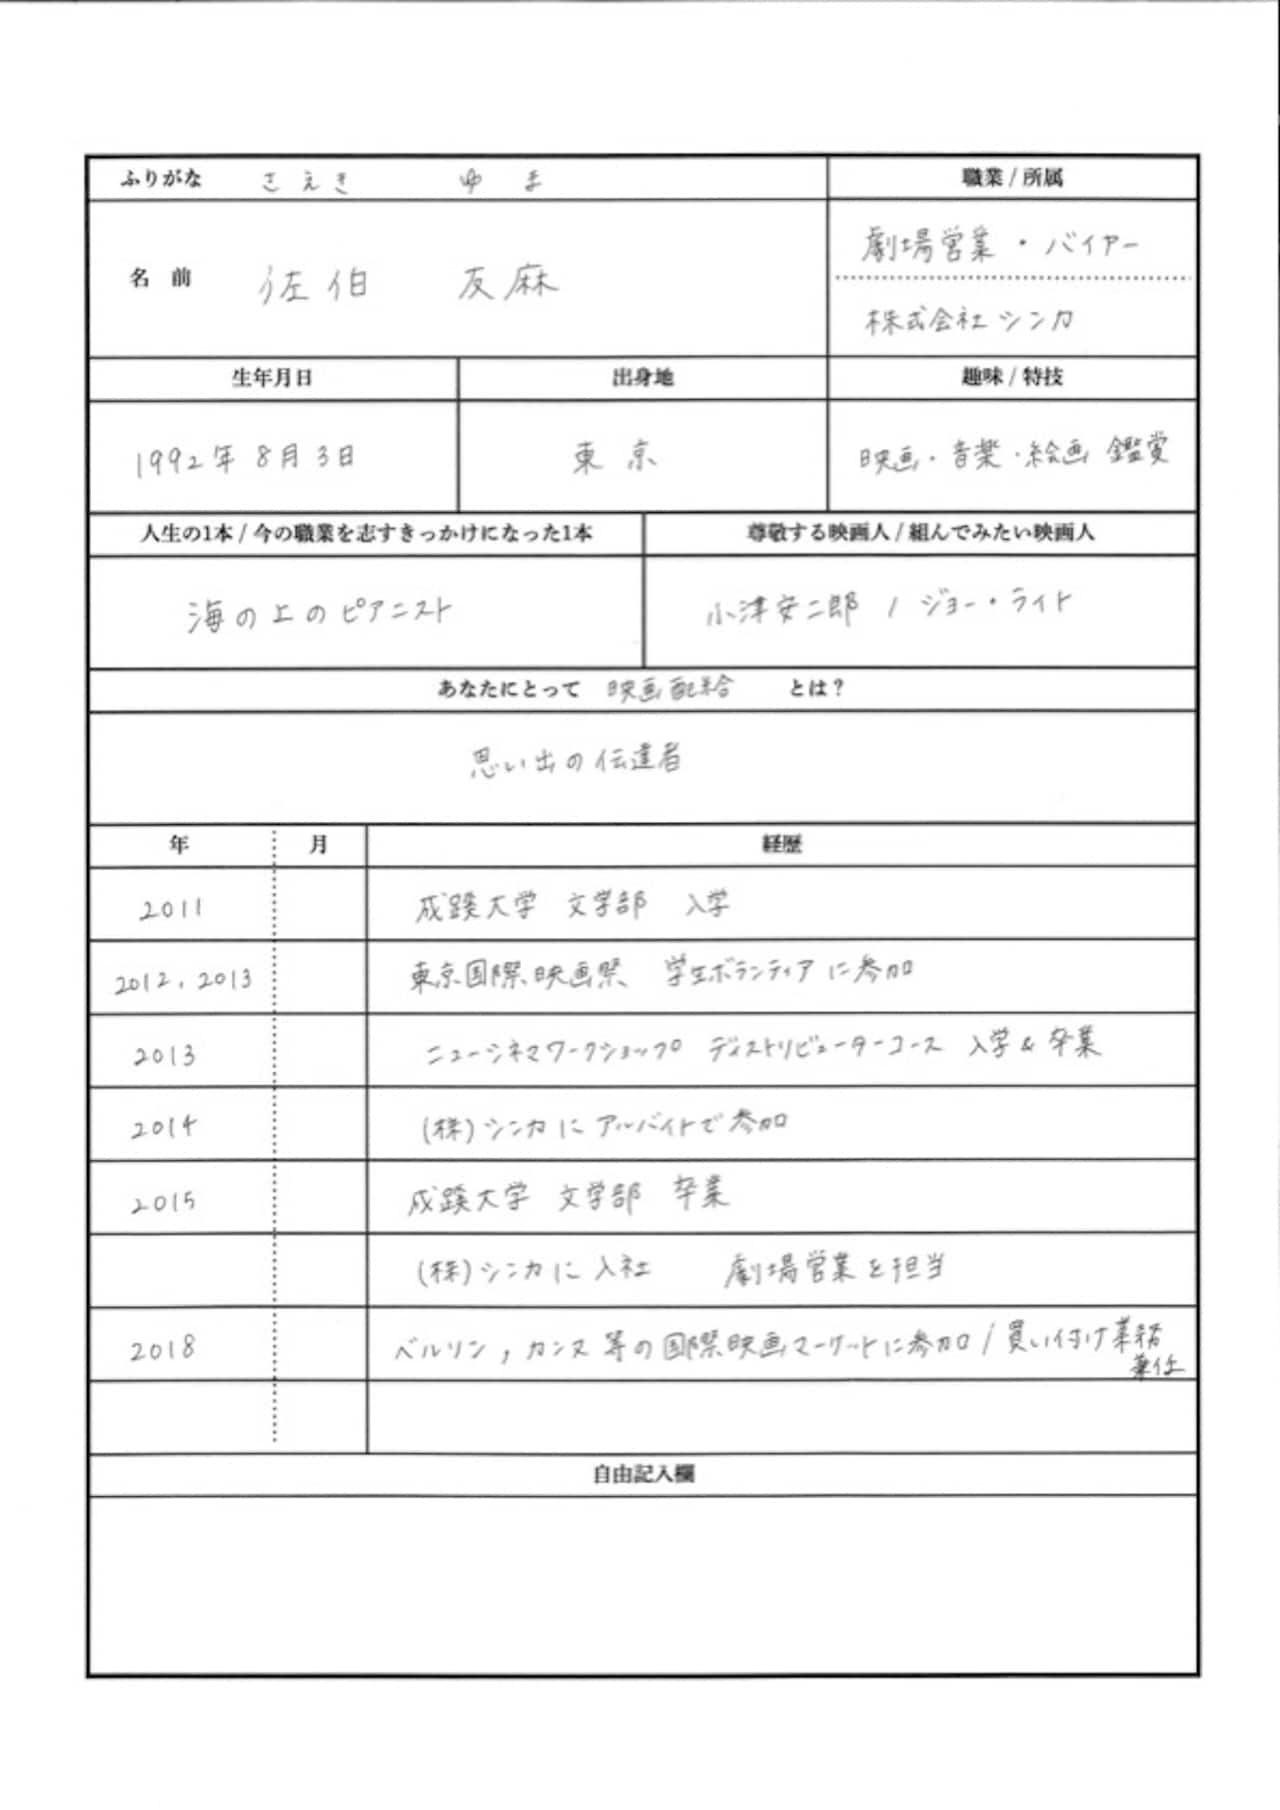 ふりがな さえき ゆま
職業 / 所属
名 前 佐伯 友麻
劇場営業・バイヤー
株式会社シンカ
生年月日 出身地 趣味 / 特技
1992年8月3日 東京 映画・音楽・絵画 鑑賞
人生の1本 / 今の職業を志すきっかけになった1本 尊敬する映画人 / 組んでみたい映画人
海の上のピアニスト 小津安二郎 / ジョー・ライト
あなたにとって 映画配給 とは?
思い出の伝達者
年 月 経歴
2011 成蹊大学 文学部 入学
2012, 2013 東京国際映画祭 学生ボランティアに参加
2013 ニューシネマワークショップ ディストリビューターコース 入学&卒業
2014 (株)シンカにアルバイトで参加
2015 成蹊大学 文学部 卒業
(株)シンカに入社 劇場営業を担当
2018 ベルリン, カンヌ等の国際映画マーケットに参加 / 買い付け業務
兼任
自由記入欄